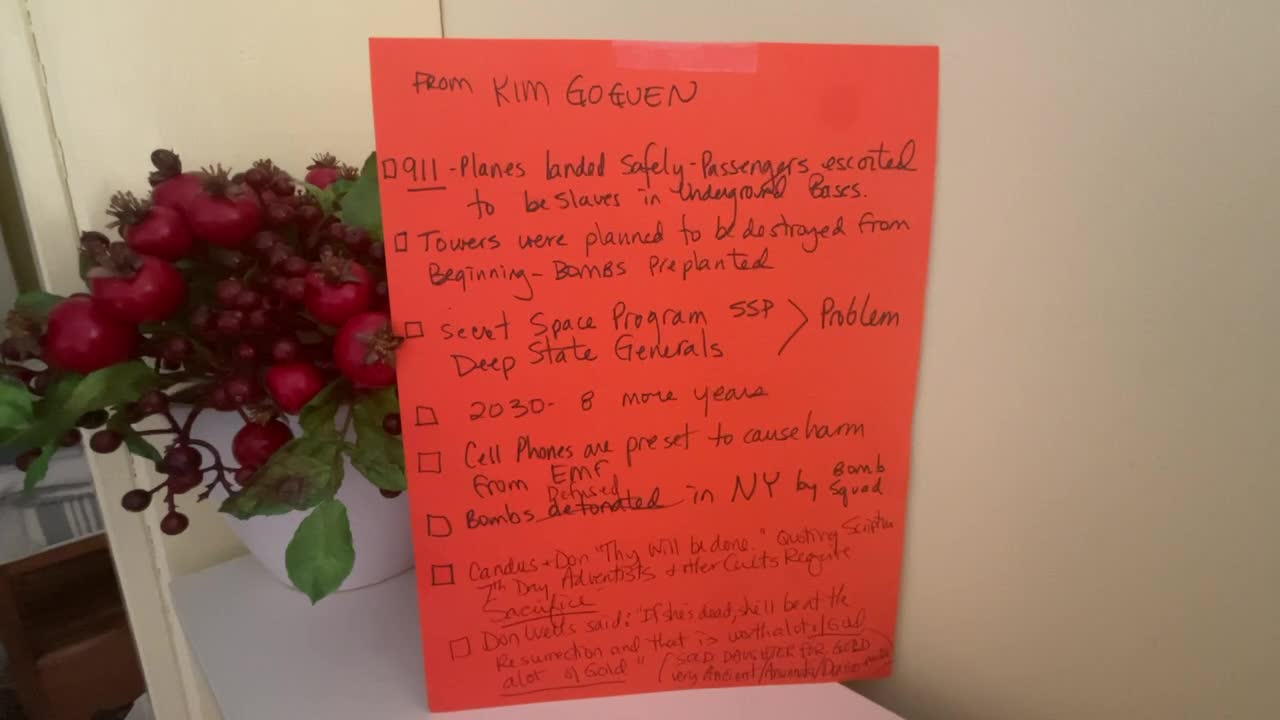 FROM KIM GOGUEN
911 - Planes landed safely - Passengers escorted
to be slaves in Underground Bases.
Towers were planned to be destroyed from
Beginning - BOMBS Preplanted
Secret Space Program SSP > Problem
Deep State Generals
2030 - 8 more years
Cell Phones are preset to cause harm
from EMF
Defused
Bombs detonated in NY by Bomb Squad
Candus + Don "Thy Will be done." Quoting Scripture
7th Day Adventists + other Cults Require
Sacrifice
Don Wells said: "If she's dead, she'll be at the
Resurrection and that is worth alot of Gold
alot of Gold" (SOLD DAUGHTER FOR GOLD
very Ancient/